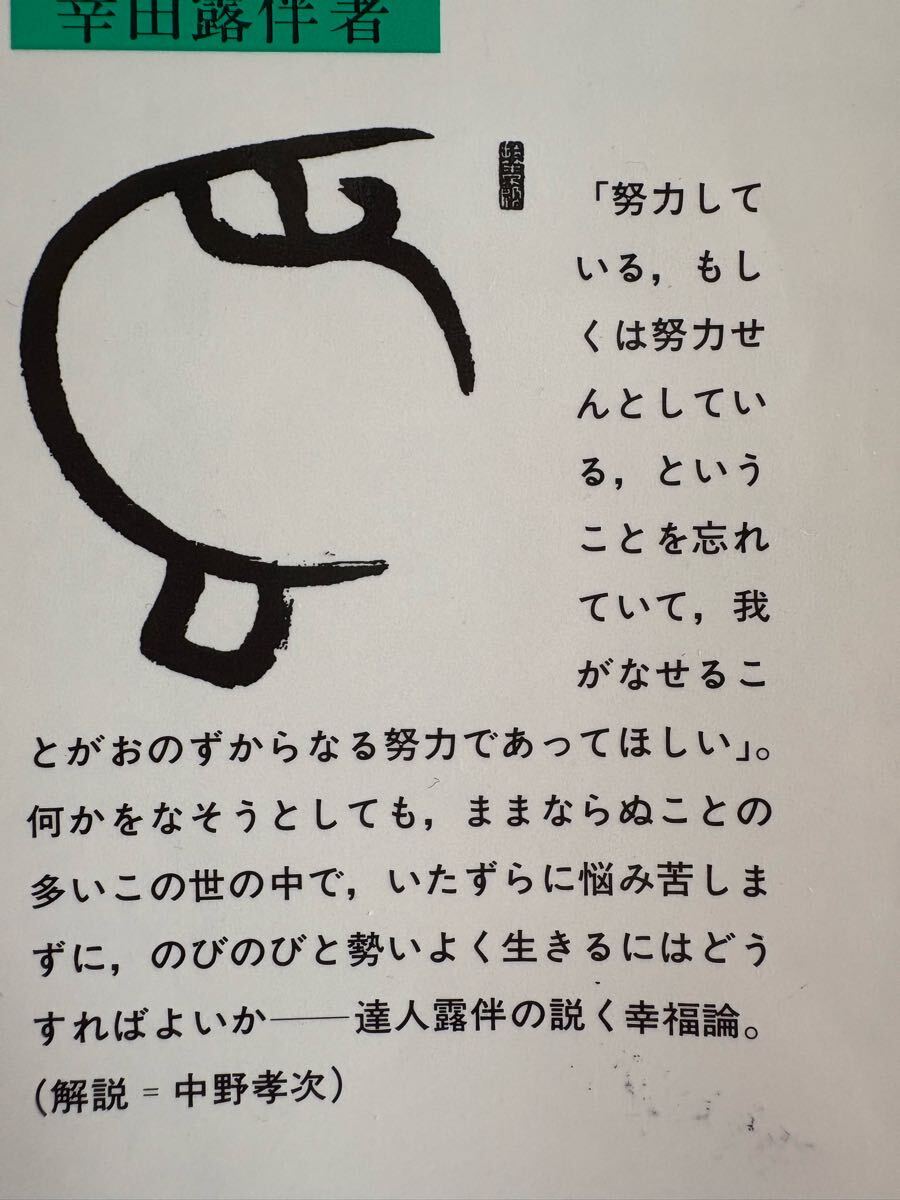 幸田露伴著
「努力して
いる，もし
くは努力せ
んとしてい
る，という
ことを忘れ
ていて，我
がなせるこ
とがおのずからなる努力であってほしい」。
何かをなそうとしても，ままならぬことの
多いこの世の中で，いたずらに悩み苦しま
ずに，のびのびと勢いよく生きるにはどう
すればよいか——達人露伴の説く幸福論。
（解説 = 中野孝次）